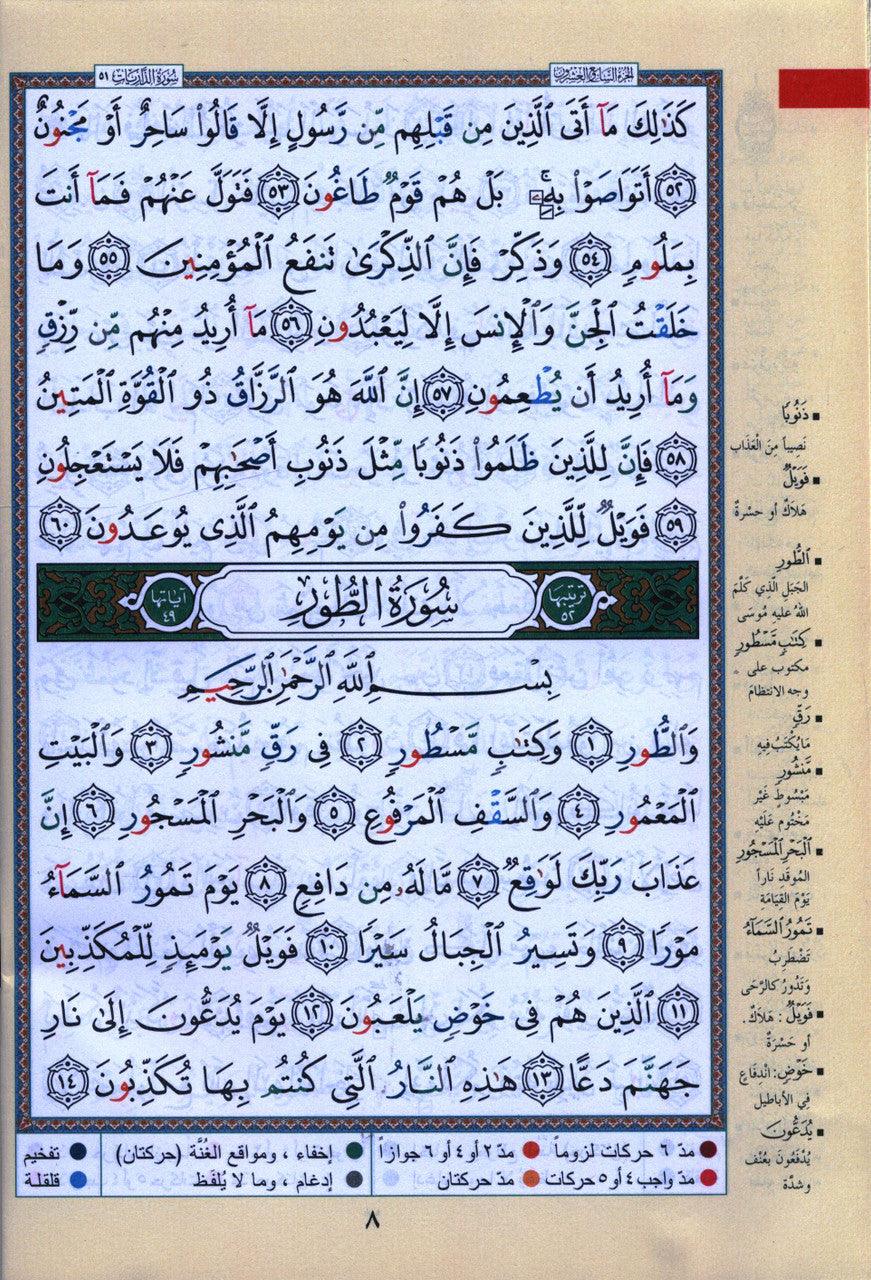 الجزء السابع والعشرون
سورة الذاريات ٥١
كَذَٰلِكَ مَآ أَتَى ٱلَّذِينَ مِن قَبْلِهِم مِّن رَّسُولٍ إِلَّا قَالُوا۟ سَاحِرٌ أَوْ مَجْنُونٌ
٥٢ أَتَوَاصَوْا۟ بِهِۦ ۚ بَلْ هُمْ قَوْمٌ طَاغُونَ ٥٣ فَتَوَلَّ عَنْهُمْ فَمَآ أَنتَ
بِمَلُومٍ ٥٤ وَذَكِّرْ فَإِنَّ ٱلذِّكْرَىٰ تَنفَعُ ٱلْمُؤْمِنِينَ ٥٥ وَمَا
خَلَقْتُ ٱلْجِنَّ وَٱلْإِنسَ إِلَّا لِيَعْبُدُونِ ٥٦ مَآ أُرِيدُ مِنْهُم مِّن رِّزْقٍ
وَمَآ أُرِيدُ أَن يُطْعِمُونِ ٥٧ إِنَّ ٱللَّهَ هُوَ ٱلرَّزَّاقُ ذُو ٱلْقُوَّةِ ٱلْمَتِينُ
٥٨ فَإِنَّ لِلَّذِينَ ظَلَمُوا۟ ذَنُوبًا مِّثْلَ ذَنُوبِ أَصْحَٰبِهِمْ فَلَا يَسْتَعْجِلُونِ
٥٩ فَوَيْلٌ لِّلَّذِينَ كَفَرُوا۟ مِن يَوْمِهِمُ ٱلَّذِى يُوعَدُونَ ٦٠
ترتيبها ٥٢
سُورَةُ الطُّورِ
آياتها ٤٩
بِسْمِ ٱللَّهِ ٱلرَّحْمَٰنِ ٱلرَّحِيمِ
وَٱلطُّورِ ١ وَكِتَٰبٍ مَّسْطُورٍ ٢ فِى رَقٍّ مَّنشُورٍ ٣ وَٱلْبَيْتِ
ٱلْمَعْمُورِ ٤ وَٱلسَّقْفِ ٱلْمَرْفُوعِ ٥ وَٱلْبَحْرِ ٱلْمَسْجُورِ ٦ إِنَّ
عَذَابَ رَبِّكَ لَوَٰقِعٌ ٧ مَّا لَهُۥ مِن دَافِعٍ ٨ يَوْمَ تَمُورُ ٱلسَّمَآءُ
مَوْرًا ٩ وَتَسِيرُ ٱلْجِبَالُ سَيْرًا ١٠ فَوَيْلٌ يَوْمَئِذٍ لِّلْمُكَذِّبِينَ
١١ ٱلَّذِينَ هُمْ فِى خَوْضٍ يَلْعَبُونَ ١٢ يَوْمَ يُدَعُّونَ إِلَىٰ نَارِ
جَهَنَّمَ دَعًّا ١٣ هَٰذِهِ ٱلنَّارُ ٱلَّتِى كُنتُم بِهَا تُكَذِّبُونَ ١٤
ذَنُوبًا
نَصيباً مِنَ الْعَذَاب
فَوَيْلٌ
هَلاَكٌ أو حسْرةٌ
ٱلطُّورِ
الجَبَل الّذي كَلَّمَ
اللهُ عليه مُوسَى
كِتَٰبٍ مَّسْطُورٍ
مكتوب على
وجه الانتظام
رَقٍّ
مَا يُكْتَبُ فِيهِ
مَّنشُورٍ
مَبْسُوطٍ غَيْر
مَخْتُوم عَلَيْه
ٱلْبَحْرِ ٱلْمَسْجُورِ
المُوقَدِ نَاراً
يَوْمَ القِيَامَة
تَمُورُ ٱلسَّمَآءُ
تَضْطَرِبُ
وَتَدُورُ كالرَّحَى
فَوَيْلٌ : هَلاَكٌ.
أو حَسْرَةٌ
خَوْضٍ : انْدِفَاعٍ
فِي الأَبَاطيل
يُدَعُّونَ
يُدْفَعُونَ بعُنْف
وشدَّة
مدّ ٦ حركات لزوماً
مدّ ٢ أو ٤ أو ٦ جوازاً
إخفاء ، ومواقع الغُنَّة (حركتان)
تفخيم
مدّ واجب ٤ أو ٥ حركات
مدّ حركتان
إدغام ، وما لا يُلفَظ
قلقلة
٨